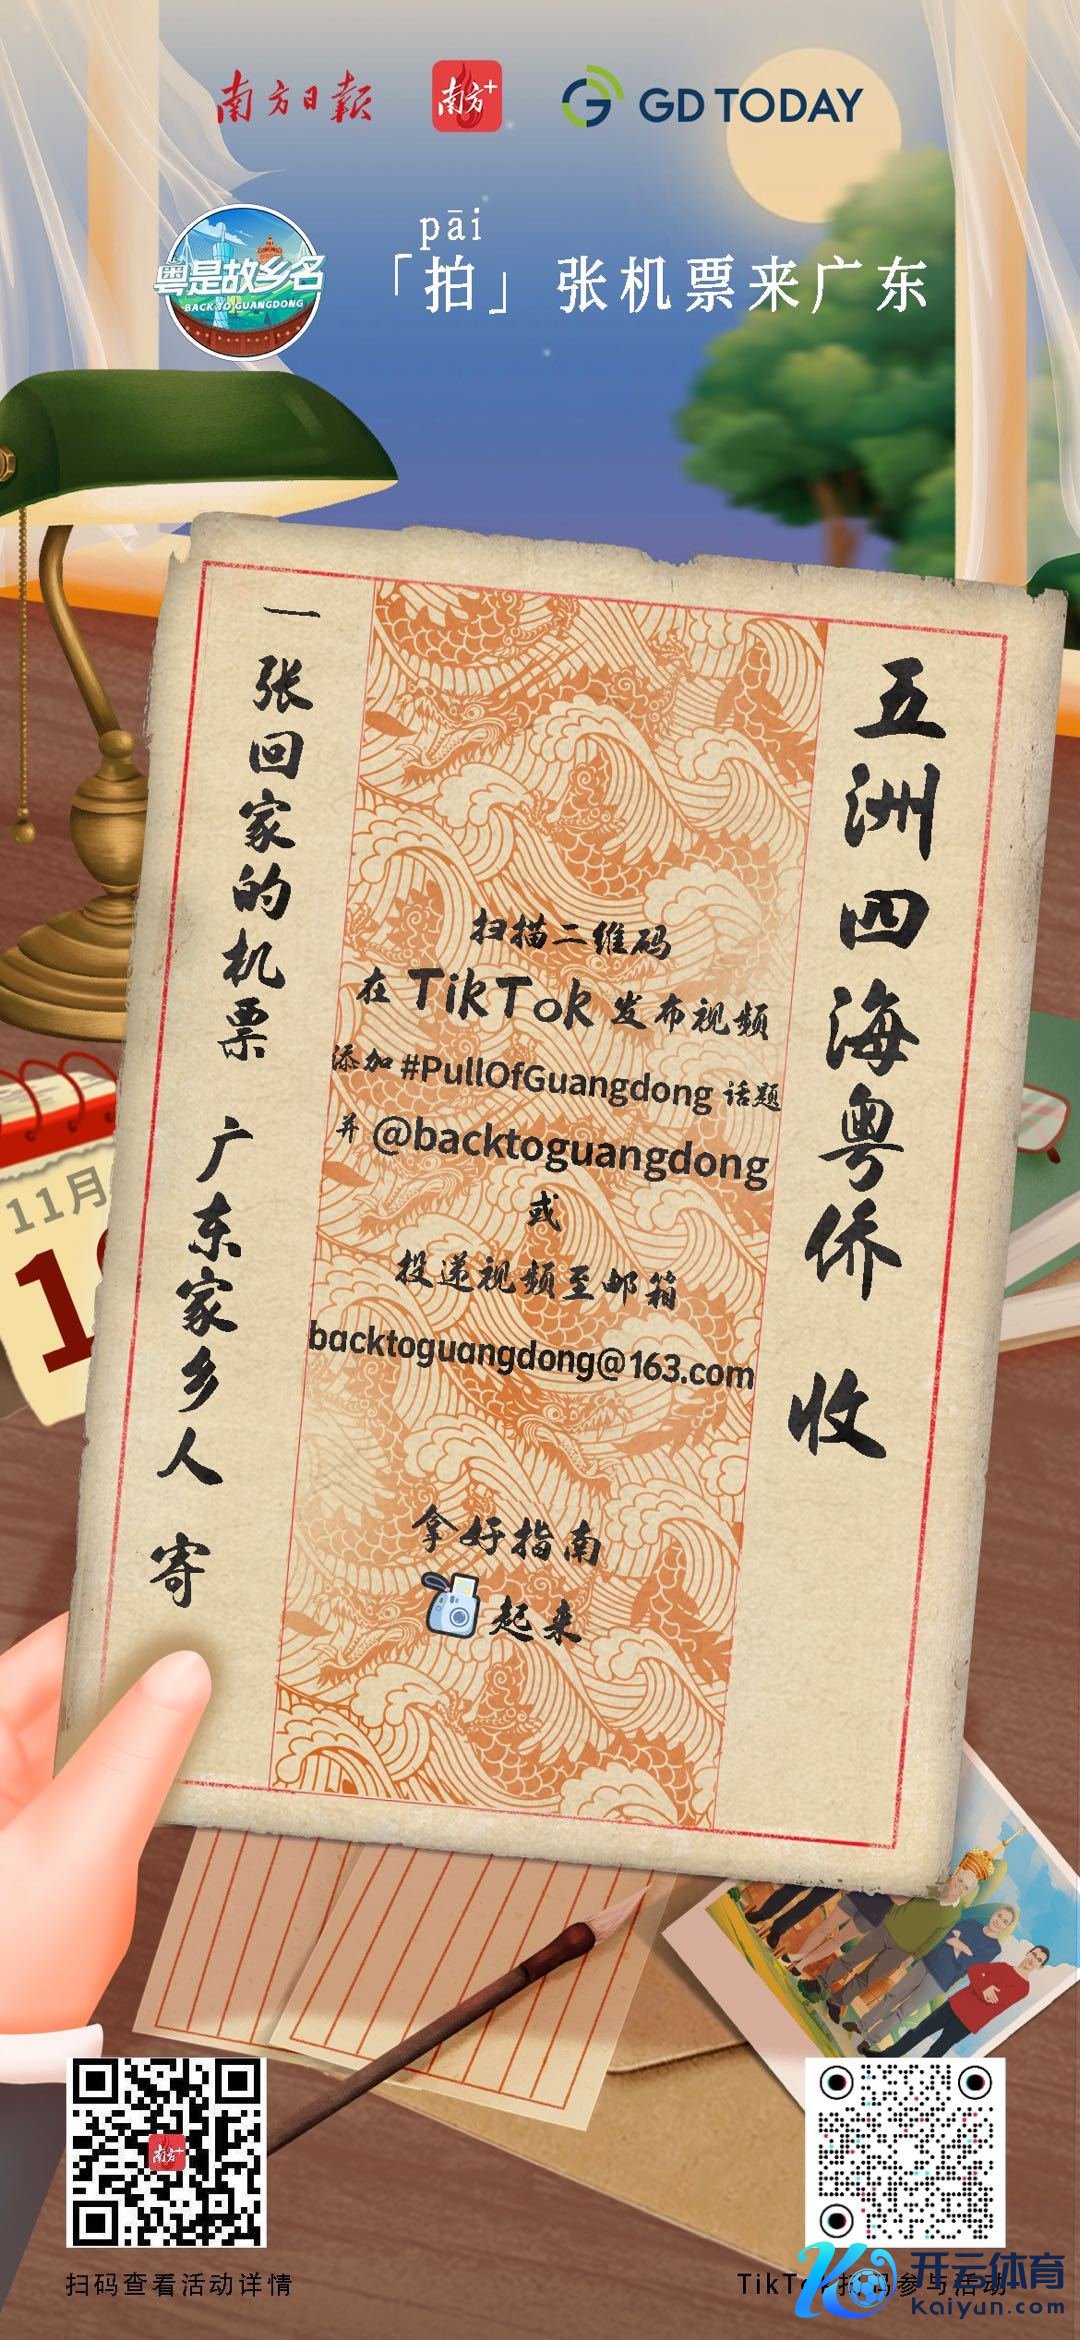 南方日報
南方+
GD TODAY
粤是故乡名
BACK TO GUANGDONG
pāi
「拍」张机票来广东
五洲四海粤侨 收
扫描二维码
在 TikTok 发布视频
添加 #PullOfGuangdong 话题
并 @backtoguangdong
或
投递视频至邮箱
backtoguangdong@163.com
拿好指南
起来
一张回家的机票 广东家乡人 寄
11月
南方+
扫码查看活动详情
TikTok扫码参与活动
开云体育
kaiyun.com